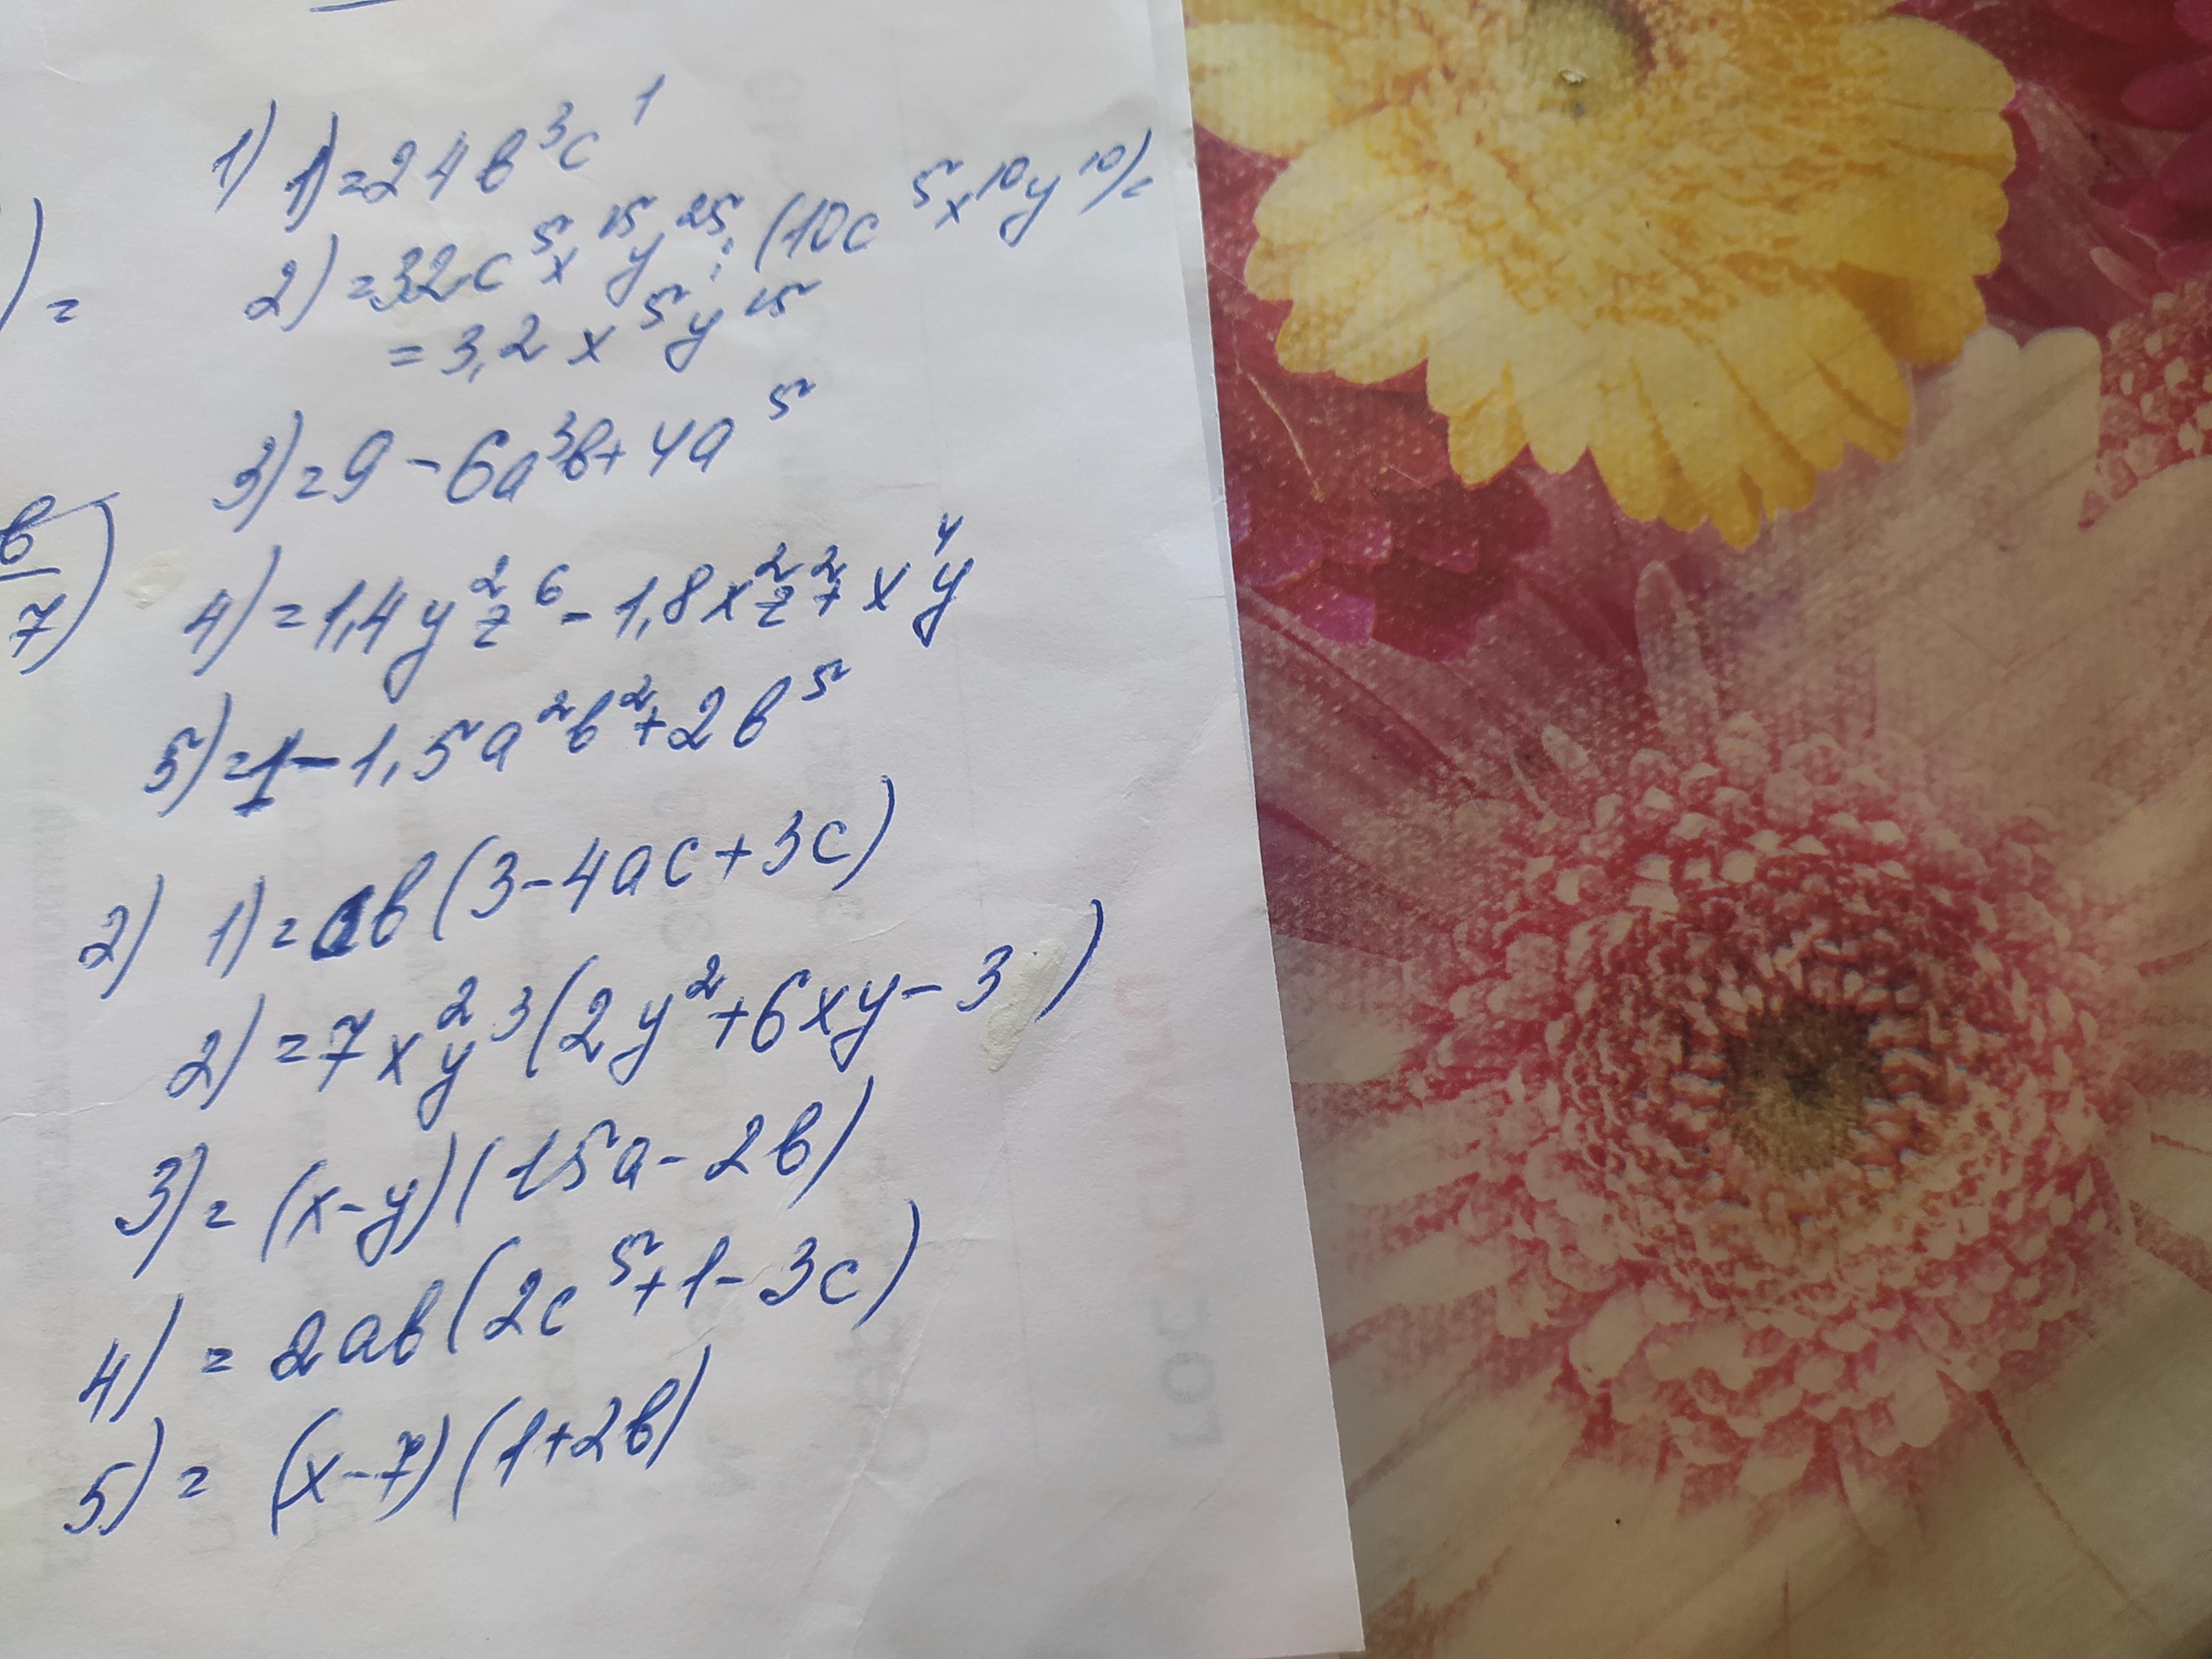 1) 1) = 24b³c¹
) = 2) = 32c⁵x¹⁵y²⁵ : (10c⁵x¹⁰y¹⁰) =
= 3,2x⁵y¹⁵
3) = 9 - 6a³b + 4a⁵
b
7) 4) = 1,4y²z⁶ - 1,8x²z²7x⁴y
5) = 1 - 1,5a²b² + 2b⁵
2) 1) = ab(3 - 4ac + 3c)
2) = 7x²y³(2y² + 6xy - 3)
3) = (x - y)(15a - 2b)
4) = 2ab(2c⁵ + 1 - 3c)
5) = (x - 7)(1 + 2b)